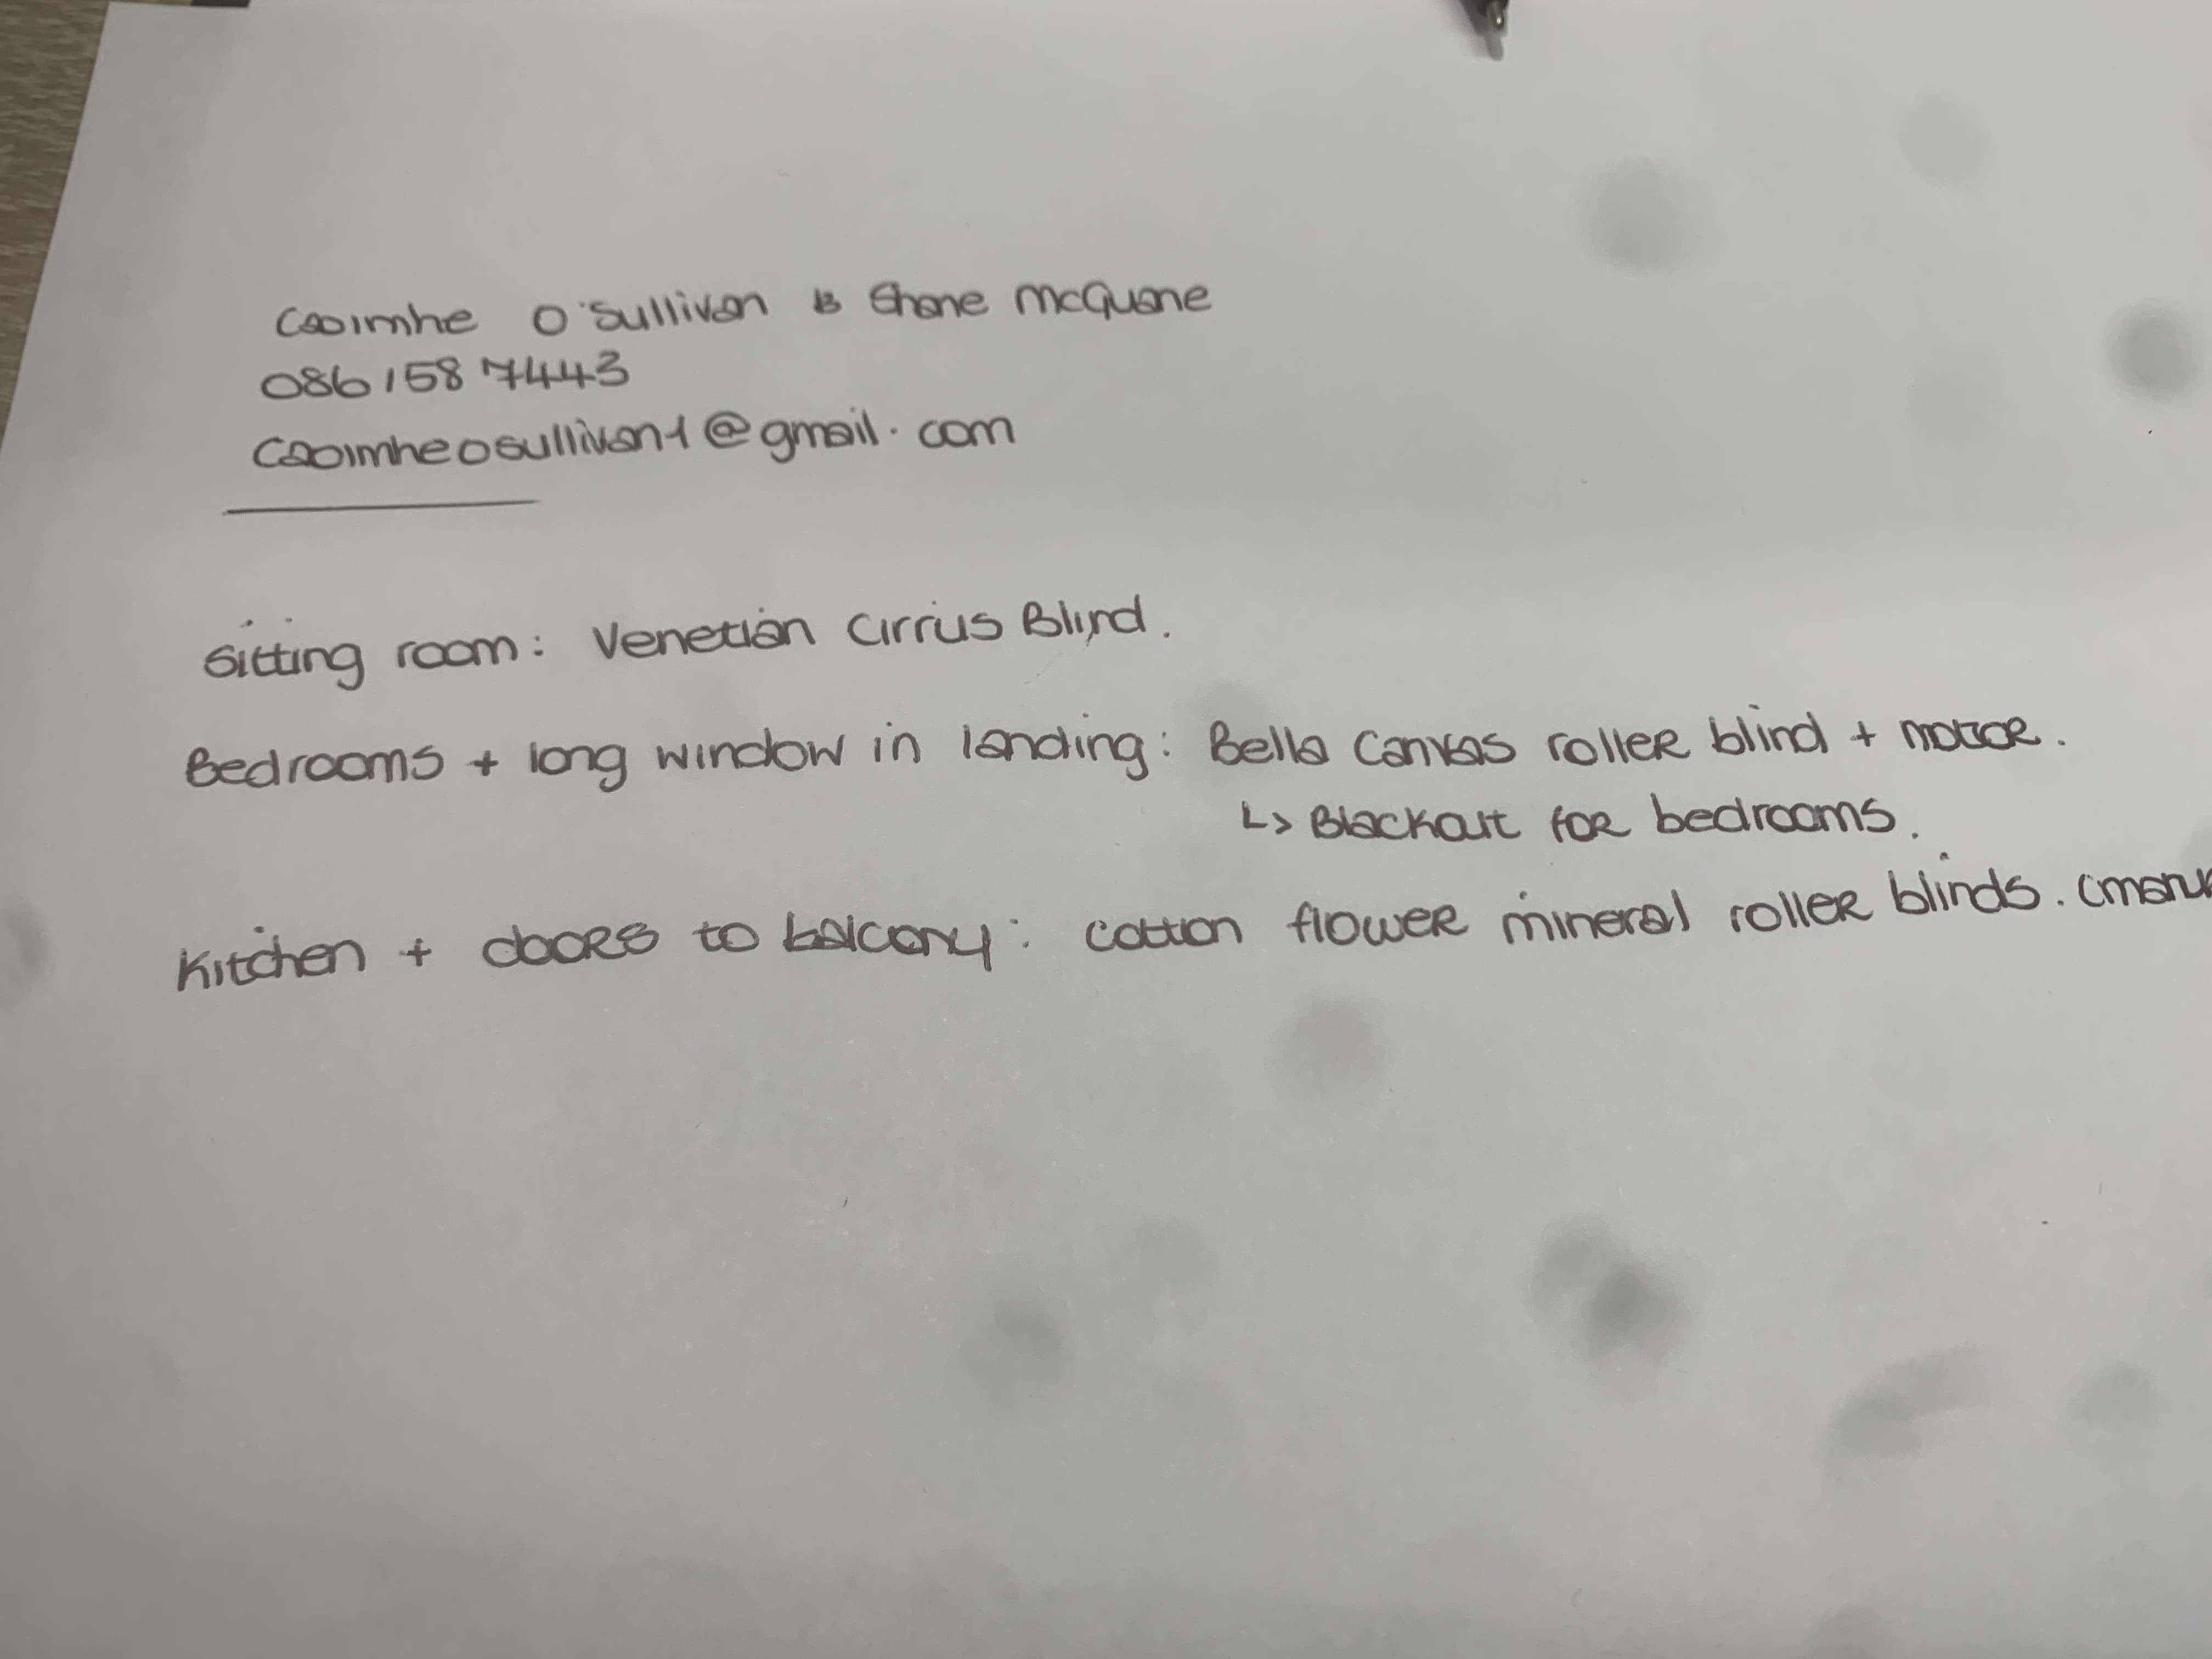 Caoimhe O'Sullivan & Shane McGuane
086 158 7443
Caoimheosullivan1@gmail.com
Sitting room: Venetian Cirrus Blind.
Bedrooms + long window in landing: Bella Canvas roller blind + motor.
↳ Blackout for bedrooms.
Kitchen + doors to balcony: cotton flower mineral roller blinds.